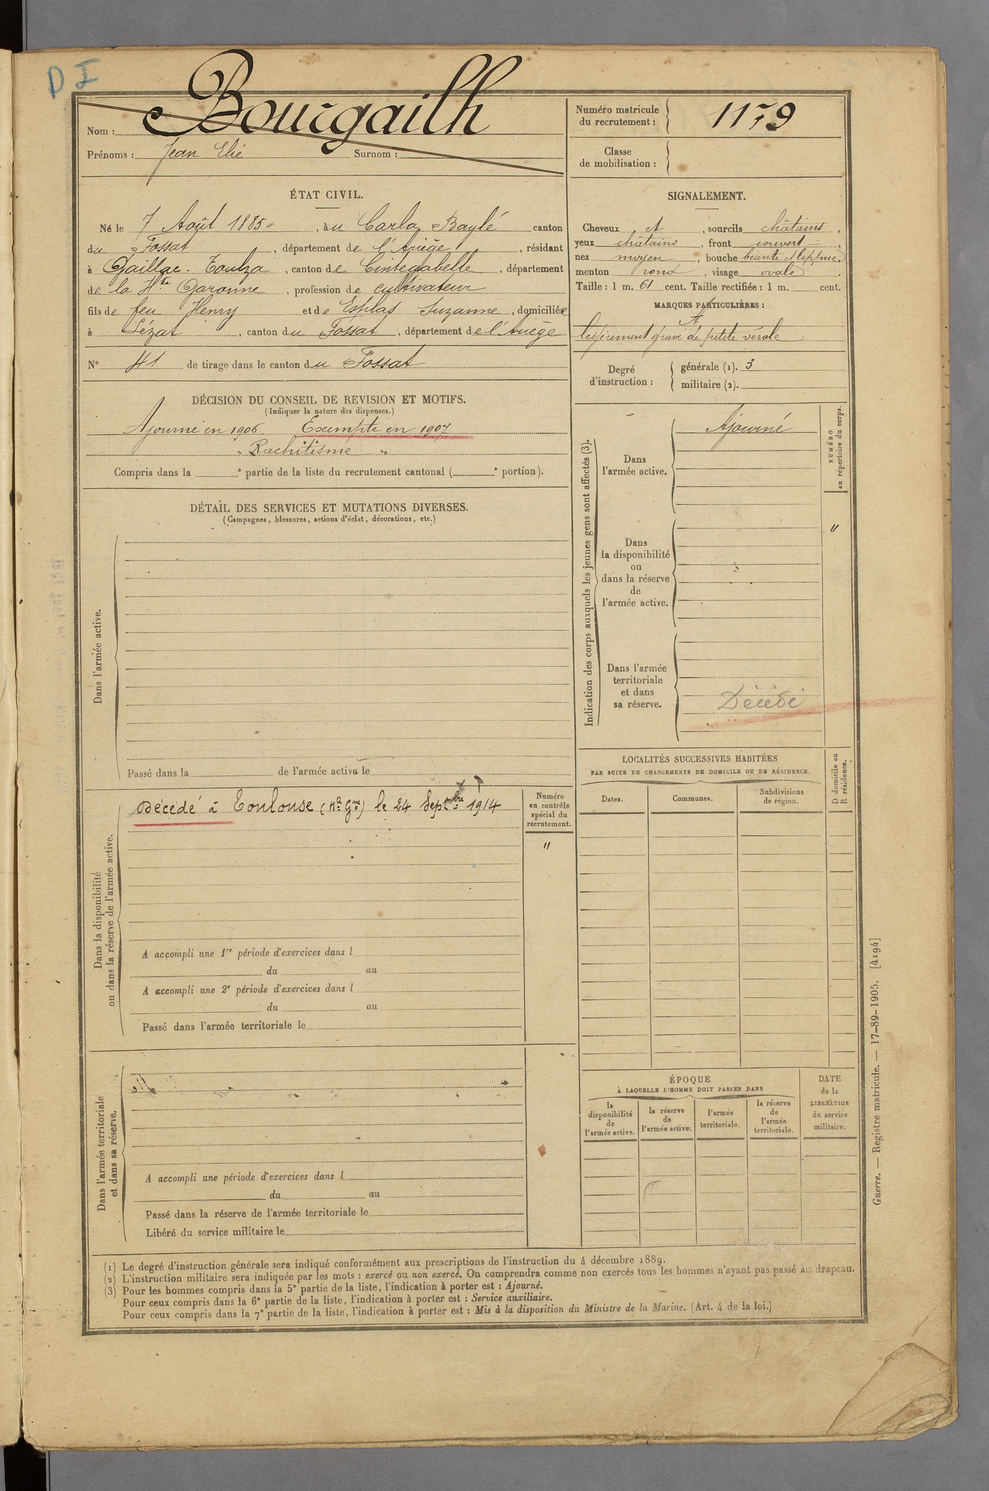 D I
Nom : Bourgailh
Prénoms : Jean Elie Surnom :
Numéro matricule du recrutement : 1179
Classe de mobilisation :
ÉTAT CIVIL.
Né le 7 Août 1885, au Carla Baylé canton
du Fossat, département de l'Ariège, résidant
à Gaillac-Toulza, canton de Cintegabelle, département
de la Hte Garonne, profession de cultivateur
fils de feu Henry et de Esplas Suzanne, domiciliés
à Lézat, canton du Fossat, département de l'Ariège
N° 41 de tirage dans le canton du Fossat
SIGNALEMENT.
Cheveux et, sourcils châtains,
yeux châtains, front couvert,
nez moyen, bouche béante et lippue,
menton rond, visage ovale.
Taille : 1 m. 61 cent. Taille rectifiée : 1 m. cent.
MARQUES PARTICULIÈRES :
légèrement gravé de petite vérole
Degré d'instruction : générale (1). 3
militaire (2).
DÉCISION DU CONSEIL DE REVISION ET MOTIFS.
(Indiquer la nature des dispenses.)
Ajourné en 1906 Exempté en 1907
" Rachitisme "
Compris dans la e partie de la liste du recrutement cantonal ( e portion).
DÉTAIL DES SERVICES ET MUTATIONS DIVERSES.
(Campagnes, blessures, actions d'éclat, décorations, etc.)
Dans l'armée active.
Passé dans la de l'armée active le
Dans la disponibilité
ou dans la réserve de l'armée active.
Décédé à Toulouse (Hte Gne) le 24 Septbre 1914
Numéro
au contrôle
spécial du
recrutement.
"
A accompli une 1re période d'exercices dans l
du au
A accompli une 2e période d'exercices dans l
du au
Passé dans l'armée territoriale le
Dans l'armée territoriale
et dans sa réserve.
A accompli une période d'exercices dans l
du au
Passé dans la réserve de l'armée territoriale le
Libéré du service militaire le
Indication des corps auxquels les jeunes gens sont affectés (3).
Dans
l'armée active.
Ajourné
NUMÉRO
au répertoire du corps.
"
Dans
la disponibilité
ou
dans la réserve
de
l'armée active.
Dans l'armée
territoriale
et dans
sa réserve.
Décédé
LOCALITÉS SUCCESSIVES HABITÉES
PAR SUITE DE CHANGEMENTS DE DOMICILE OU DE RÉSIDENCE.
Dates. Communes. Subdivisions
de région.
D domicile ou
R résidence.
ÉPOQUE
À LAQUELLE L'HOMME DOIT PASSER DANS
la
disponibilité
de
l'armée active.
la réserve
de
l'armée active.
l'armée
territoriale.
la réserve
de
l'armée
territoriale.
DATE
de la
LIBÉRATION
du service
militaire.
(1) Le degré d'instruction générale sera indiqué conformément aux prescriptions de l'instruction du 4 décembre 1889.
(2) L'instruction militaire sera indiquée par les mots : exercé ou non exercé. On comprendra comme non exercés tous les hommes n'ayant pas passé au drapeau.
(3) Pour les hommes compris dans la 5e partie de la liste, l'indication à porter est : Ajourné.
Pour ceux compris dans la 6e partie de la liste, l'indication à porter est : Service auxiliaire.
Pour ceux compris dans la 7e partie de la liste, l'indication à porter est : Mis à la disposition du Ministre de la Marine. (Art. 4 de la loi.)
Guerre. — Registre matricule. — 17-89-1905. [4194]